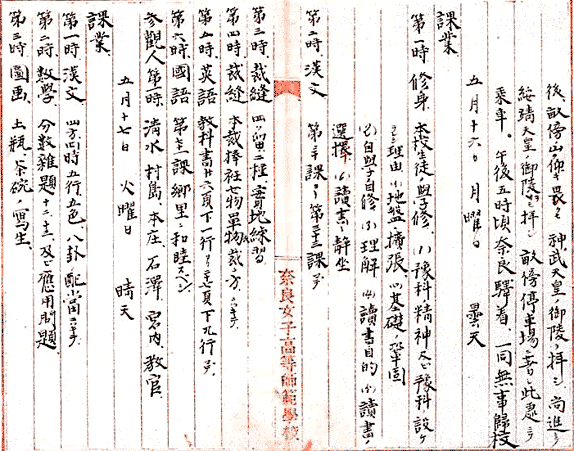 後、畝傍山ヲ傳ヒ畏クモ神武天皇ノ御陵ヲ拝シ尚進ミテ
綏靖天皇ノ御陵ヲモ拝シ畝傍停車場ニ至リ此處ヨリ
乗車。午後五時頃奈良驛着、一同無事歸校
五月十六日 月曜日 曇天
課業
第一時 修身 本校生徒ノ學修、(1)豫科精神及ビ豫科設ケ
理由 (イ)地盤擴張 (ロ)基礎ノ鞏固
(2)自學自修 (3)理解 (4)讀書目的 (5)讀書ノ
選擇 (6)讀書ト靜坐
第二時 漢文 第三十課ヨリ第三十三課マデ
第三時 裁縫 四ツ留二種ノ實地練習
第四時 裁縫 本裁捧社七物單物裁チ方ニツキテ
第五時 英語 教科書廿六頁下一行ヨリ廿七頁下九行マデ
第六時 國語 第十三課郷里ノ和睦スベシ
参觀人 第一時 清水、村島、本庄、石澤、宮内、教官
五月十七日 火曜日 晴天
課業
第一時 漢文 四方、四時五行五色八卦ノ配當ニツキテ
第二時 數學 分數雜題十二、十三及ビ應用問題
第三時 圖画 土瓶ト茶碗ノ寫生
奈良女子高等師範學校